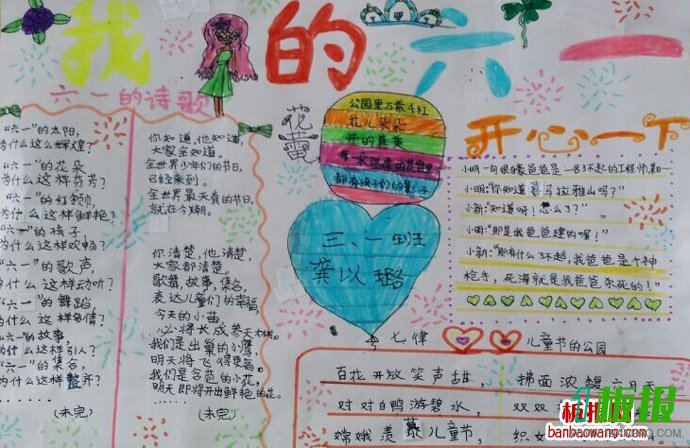 我的六一
六一的诗歌
"六一"的太阳,
为什么这么辉煌?
"六一"的花朵
为什么这样芬芳?
"六一"的红领
为什么这样鲜艳?
"六一"的孩子,
为什么这样欢畅?
"六一"的歌声,
为什么这样动听?
"六一"的舞蹈,
为什么这样多情?
"六一"的故事,
为什么这样引人?
"六一"的集合,
为什么这样整齐?
(未完)
你知道,他知道,
大家全知道。
全世界少年们的节日,
已经来到。
全世界最天真的节日,
就在今朝。
你清楚,他清楚,
大家都清楚。
歌舞,故事,集合,
表达儿童们的幸福
今天的小苗,
必将长成参天大树。
我们是出巢的小鹰,
明天将飞得更高。
我们是含苞的小花,
明天即将开出鲜艳的花。
(未完)
花蕾
公园里万紫千红
花儿朵朵
开的最美
都有孩子们的影子
三、一班
龚以璐
开心一下
小明:"你知道喜马拉雅山吗?"
小新:"知道呀!怎么了?"
小明:"那是我爸爸建的喔!"
小新:"那有什么了不起,我爸爸是个神
枪手,死海就是我爸爸杀死的!"
七律
儿童节的公园
百花开放笑声甜
拂面浓
六月天
对对白鸭游碧水,
双双
嫦娥羡慕儿童节
织女
板报
www.banbaowang.com